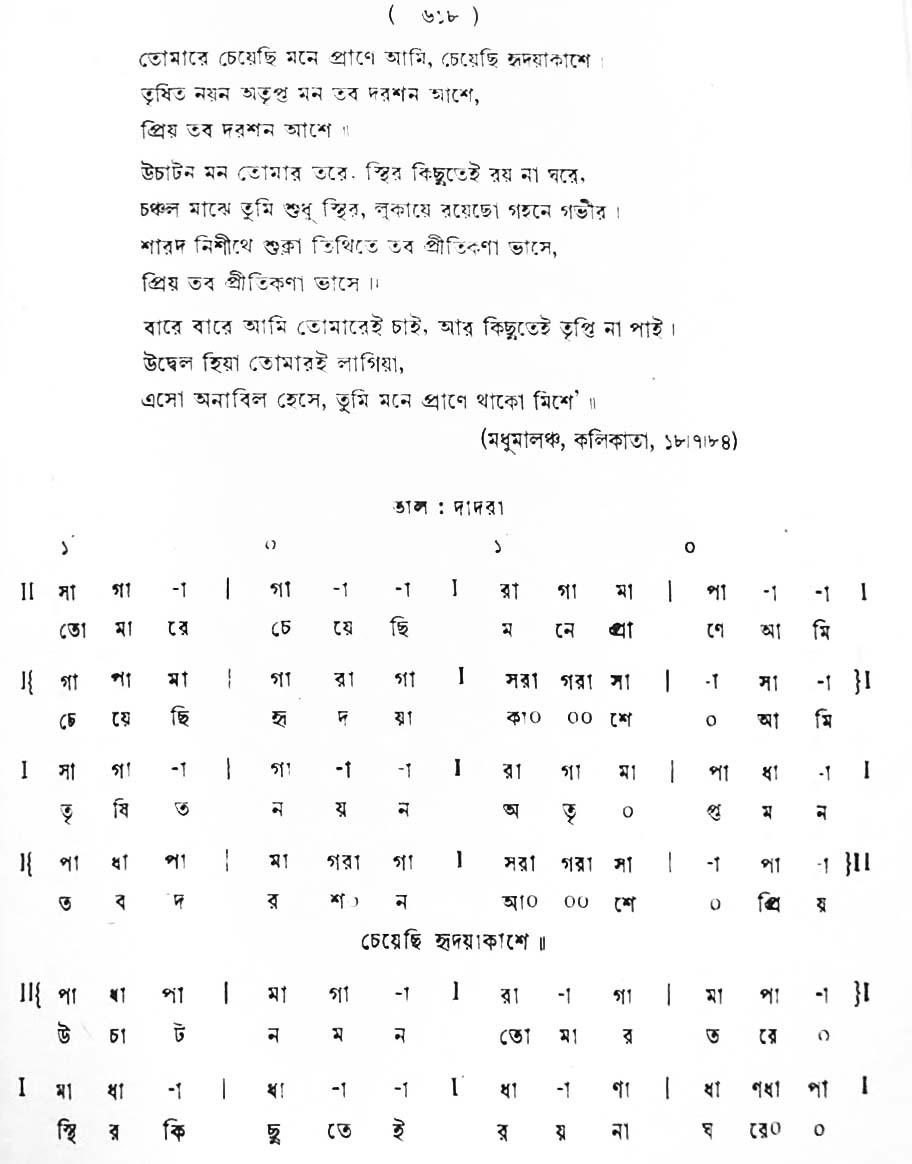 ( ৬১৮ )
তোমারে চেয়েছি মনে প্রাণে আমি, চেয়েছি হৃদয়াকাশে।
তৃষিত নয়ন অতৃপ্ত মন তব দরশন আশে,
প্রিয় তব দরশন আশে॥
উচাটন মন তোমার তরে. স্থির কিছুতেই রয় না ঘরে,
চঞ্চল মাঝে তুমি শুধু স্থির, লুকায়ে রয়েছো গহনে গভীর।
শারদ নিশীথে শুক্লা তিথিতে তব প্রীতিকণা ভাসে,
প্রিয় তব প্রীতিকণা ভাসে॥
বারে বারে আমি তোমারেই চাই, আর কিছুতেই তৃপ্তি না পাই।
উদ্বেল হিয়া তোমারই লাগিয়া,
এসো অনাবিল হেসে, তুমি মনে প্রাণে থাকো মিশে'॥
(মধুমালঞ্চ, কলিকাতা, ১৮।৭।৮৪)
তাল : দাদরা
১ ০ ১ ০
II সা গা -া | গা -া -া I রা গা মা | পা -া -া I
তো মা রে চে য়ে ছি ম নে প্রা ণে আ মি
I{ গা পা মা | গা রা গা I সরা গরা সা | -া সা -া }I
চে য়ে ছি হৃ দ য়া কা০ ০০ শে ০ আ মি
I সা গা -া | গা -া -া I রা গা মা | পা ধা -া I
তৃ ষি ত ন য় ন অ তৃ ০ প্ত ম ন
I{ পা ধা পা | মা গরা গা I সরা গরা সা | -া পা -া }II
ত ব দ র শ০ ন আ০ ০০ শে ০ প্রি য়
চেয়েছি হৃদয়াকাশে॥
II{ পা ধা পা | মা গা -া I রা -া গা | মা পা -া }I
উ চা ট ন ম ন তো মা র ত রে ০
I মা ধা -া | ধা -া -া I ধা -া ণা | ধা ণধা পা I
স্থি র কি ছু তে ই র য় না ঘ রে০ ০